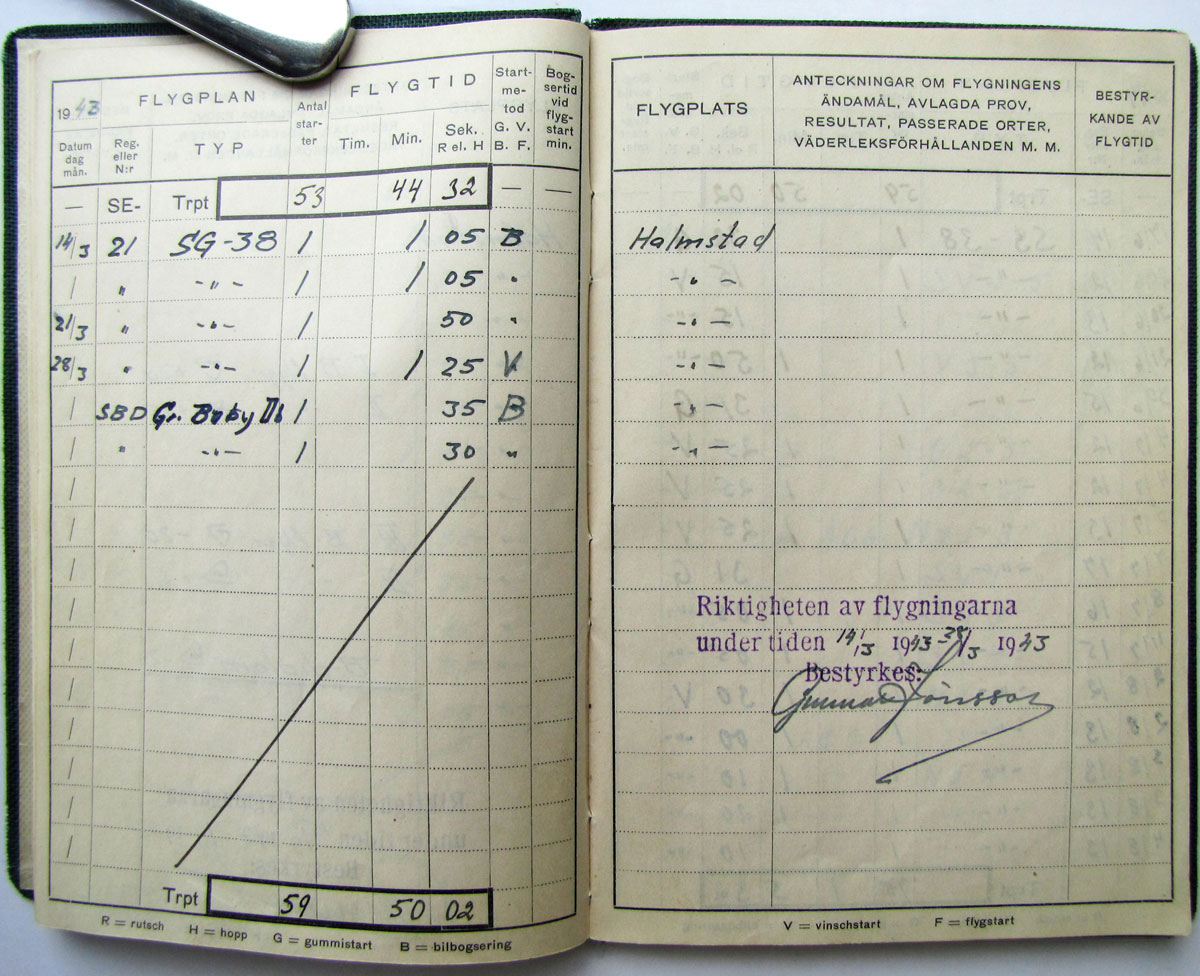 1943
FLYGPLAN
Antal star- ter
FLYGTID
Start- me- tod G. V. B. F.
Bog- sertid vid flyg- start min.
Datum dag mån.
Reg. eller N:r
TYP
Tim.
Min.
Sek. Rel. H
— SE- Trpt 53 44 32 — —
14/3 21 SG-38 1 1 05 B
/ " -"- 1 1 05 "
21/3 " -"- 1 50 "
28/3 " -"- 1 1 25 V
/ SBD Gr. Baby IIb 1 35 B
/ " -"- 1 30 "
/
/
/
/
/
/
/
/
/
/
Trpt 59 50 02
R = rutsch H = hopp G = gummistart B = bilbogsering
FLYGPLATS
ANTECKNINGAR OM FLYGNINGENS
ÄNDAMÅL, AVLAGDA PROV,
RESULTAT, PASSERADE ORTER,
VÄDERLEKSFÖRHÅLLANDEN M. M.
BESTYR-
KANDE AV
FLYGTID
Halmstad
-"-
-"-
-"-
-"-
-"-
Riktigheten av flygningarna
under tiden 14/3 1943-28/3 1943
Bestyrkes:
Gunnar Jönsson
V = vinschstart F = flygstart